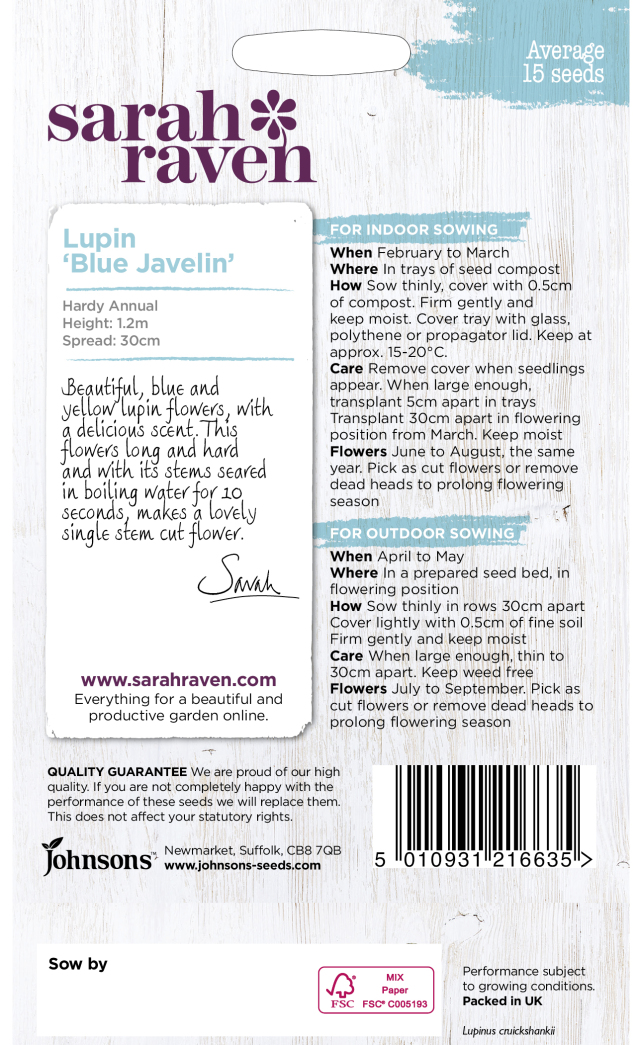 Average
15 seeds
sarah
raven
Lupin
‘Blue Javelin’
Hardy Annual
Height: 1.2m
Spread: 30cm
Beautiful, blue and
yellow lupin flowers, with
a delicious scent. This
flowers long and hard
and with its stems seared
in boiling water for 10
seconds, makes a lovely
single stem cut flower.
Sarah
www.sarahraven.com
Everything for a beautiful and
productive garden online.
FOR INDOOR SOWING
When February to March
Where In trays of seed compost
How Sow thinly, cover with 0.5cm
of compost. Firm gently and
keep moist. Cover tray with glass,
polythene or propagator lid. Keep at
approx. 15-20°C.
Care Remove cover when seedlings
appear. When large enough,
transplant 5cm apart in trays
Transplant 30cm apart in flowering
position from March. Keep moist
Flowers June to August, the same
year. Pick as cut flowers or remove
dead heads to prolong flowering
season
FOR OUTDOOR SOWING
When April to May
Where In a prepared seed bed, in
flowering position
How Sow thinly in rows 30cm apart
Cover lightly with 0.5cm of fine soil
Firm gently and keep moist
Care When large enough, thin to
30cm apart. Keep weed free
Flowers July to September. Pick as
cut flowers or remove dead heads to
prolong flowering season
QUALITY GUARANTEE We are proud of our high
quality. If you are not completely happy with the
performance of these seeds we will replace them.
This does not affect your statutory rights.
Johnsons™
Newmarket, Suffolk, CB8 7QB
www.johnsons-seeds.com
5 010931 216635 >
Sow by
FSC
MIX
Paper
FSC® C005193
Performance subject
to growing conditions.
Packed in UK
Lupinus cruickshankii